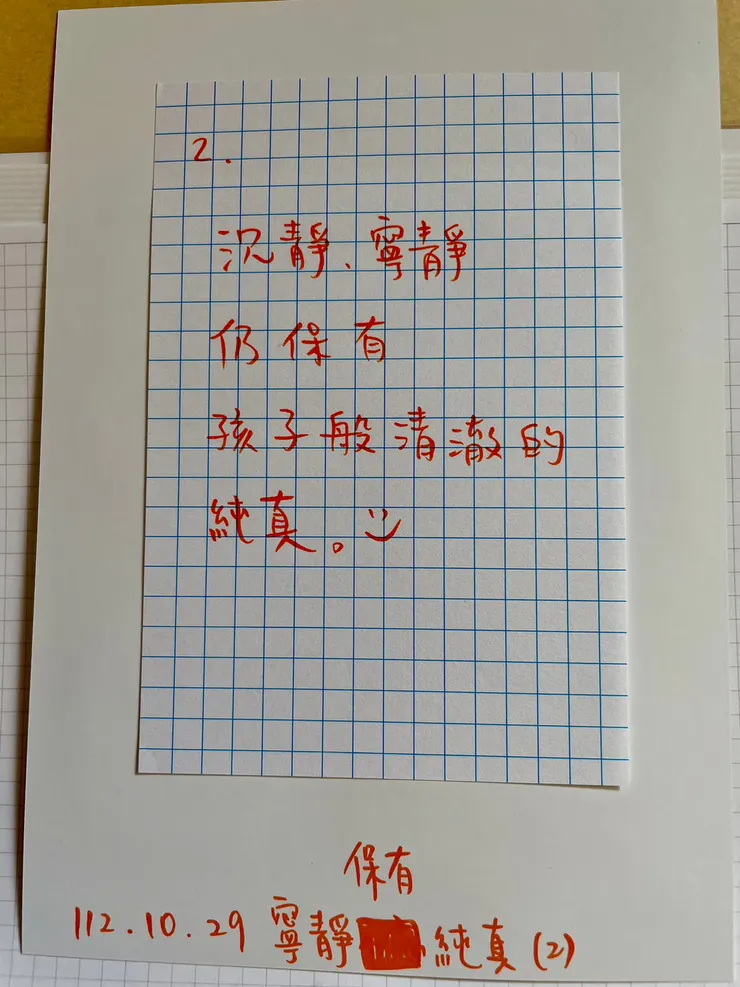 2.
沉靜、寧靜
仍保有
孩子般清澈的
純真。
保有
112.10.29 寧靜 純真(2)